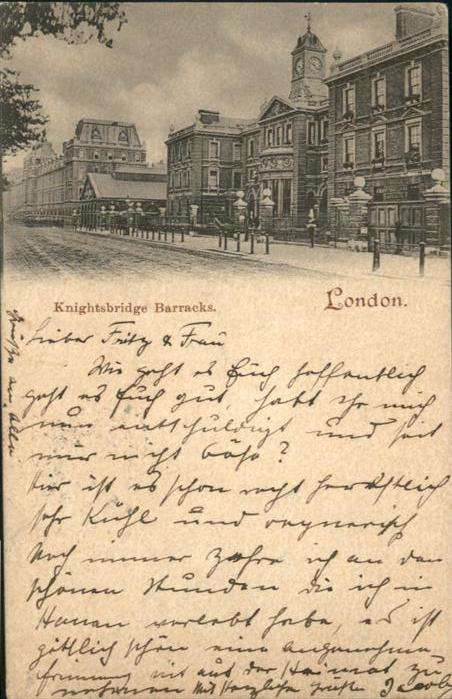 Knightsbridge Barracks. London.
Lieber Fritz & Frau
Wie geht es Euch hoffentlich
geht es Euch gut, habt Ihr mich
nun entschuldigt und seit
mir nicht böse?
Hier ist es schon recht herbstlich
sehr Kühl und regnerisch
Noch immer zehre ich an den
schönen Stunden die ich in
Hanau verlebt habe, es ist
göttlich schön eine angenehme
Erinnerung mit aus der Heimat zu
nehmen Mit herzlichen Grüßen Jacob
Grüße an Alle